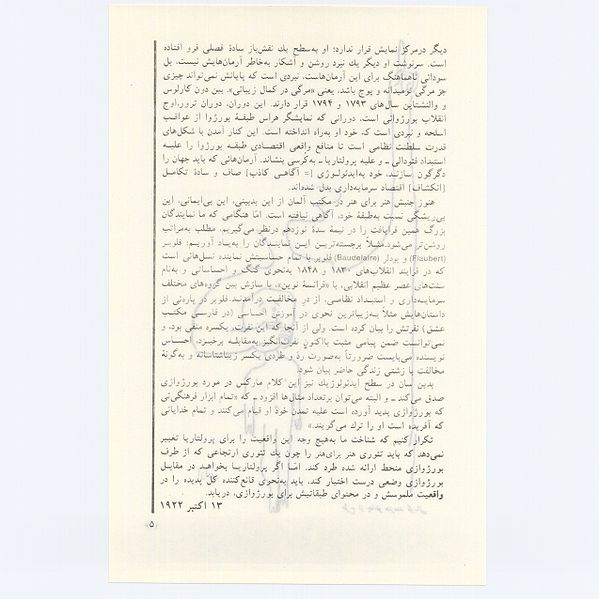 دیگر در مرکز نمایش قرار ندارد؛ او به‌سطح یك نقش‌باز سادهٔ فصلی فرو افتاده
است. سرنوشت او دیگر یك نبرد روشن و آشکار به‌خاطر آرمان‌هایش نیست، بل
سودائی ناهماهنگ برای این آرمان‌هاست، نبردی است که پایانش نمی‌تواند چیزی
جز مرگی نومیدانه و پوچ باشد، یعنی «مرگی در کمال زیبائی». بین دون کارلوس
و والنشتاین سال‌های ۱۷۹۳ و ۱۷۹۴ قرار دارند. این دوران، دوران ترور، اوج
انقلاب بورژوائی است، دورانی که نمایشگر هراس طبقهٔ بورژوا از عواقب
اسلحه و نبردی است که خود او به‌راه انداخته است. این کنار آمدن با شکل‌های
قدرت سلطنت نظامی است تا منافع واقعی اقتصادی طبقه بورژوا را علیـه
استبداد فئودالی ــ و علیه پرولتاریا ــ به‌کرسی بنشاند. آرمان‌هائی که باید جهان را
دگرگون سازنـد، خود به‌ایدئولـوژی [= آگاهـی کاذب] صاف و سادهٔ تکامـل
[انکشاف] اقتصاد سرمایه‌داری بدل شده‌اند.
هنوز جنبش هنر برای هنر در مکتب آلمان از این بدبینی، این بی‌ایمانی، این
بی‌ریشگی نسبت به‌طبقهٔ خود، آگاهی نیافته است. امّا هنگامی که ما نمایندگان
بزرگ همین قرابافت را در نیمهٔ سدهٔ نوزدهم درنظر می‌گیریم، مطلب به‌مراتب
روشن‌تر می‌شود. مثـلاً برجسته‌تریـن ایـن نماینـدگان را به‌یـاد آوریـم: فلوبـر
(Flaubert) و بودلر (Baudelaire) فلوبر با تمام حساسیتش نماینده نسل‌هائی است
که در فرایند انقلاب‌های ۱۸۳۰ و ۱۸۴۸ به‌نحوی گنگ و احساساتی و به‌نام
سنت‌های عصر عظیم انقلابی، با «فرانسهٔ نوین»، با سازش بین گروه‌های مختلف
سرمایه‌داری و استبداد نظامـی، از در مخالفـت درآمدنـد. فلوبر در پاره‌ئی از
داستان‌هایش مثلاً به‌زیباترین نحوی در آموزش احساسی (در فارسی مکتب
عشق) نفرتش را بیان کرده است. ولی از آنجا که این نفرت، یکسره منفی بود، و
نمی‌توانست ضمن پیامی مثبت بااکنون نفرت‌انگیز به‌مقابلـه برخیـزد، احسـاس
نویسنده می‌بایست ضرورتاً به‌صورت ردّ و طردی یکسر زیباشناسانه و به‌گونهٔ
مخالفت با زشتی زندگی حاضر بیان شود.
بدین سان در سطح ایدئولوژیك نیز این کلام مارکس در مورد بورژوازی
صدق می‌کند ــ و البته می‌توان برتعداد مثال‌ها افزود ــ که «تمام ابزار فرهنگی‌ئی
که بورژوازی پدید آورده است علیه تمدن خود او قیام می‌کنند و تمام خدایانی
که آفریده است او را ترك می‌گویند.»
تکرار کنیم که شناخت ما به‌هیچ وجه این واقعیت را برای پرولتاریا تغییر
نمی‌دهد که باید تئوری هنر برای‌هنر را چون یك تئوری ارتجاعی که از طرف
بورژوازی منحط ارائه شده طرد کند. امّا اگر پرولتاریـا بخواهـد در مقابـل
بورژوازی وضعی درست اختیار کند، باید به‌نحوی قانع‌کننده کلّ پدیده را در
واقعیت ملموسش و در محتوای طبقاتیش برای بورژوازی، دریابد.
۱۳ اکتبر ۱۹۲۲
۵